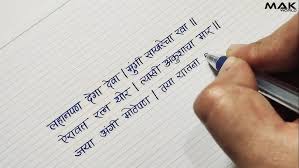 MAK
लहानपण देगा देवा । मुंगी साखरेचा रवा ॥
ऐरावत रत्न थोर । त्यासी अंकुशाचा मार ॥
जया अंगी मोठेपण । तया यातना